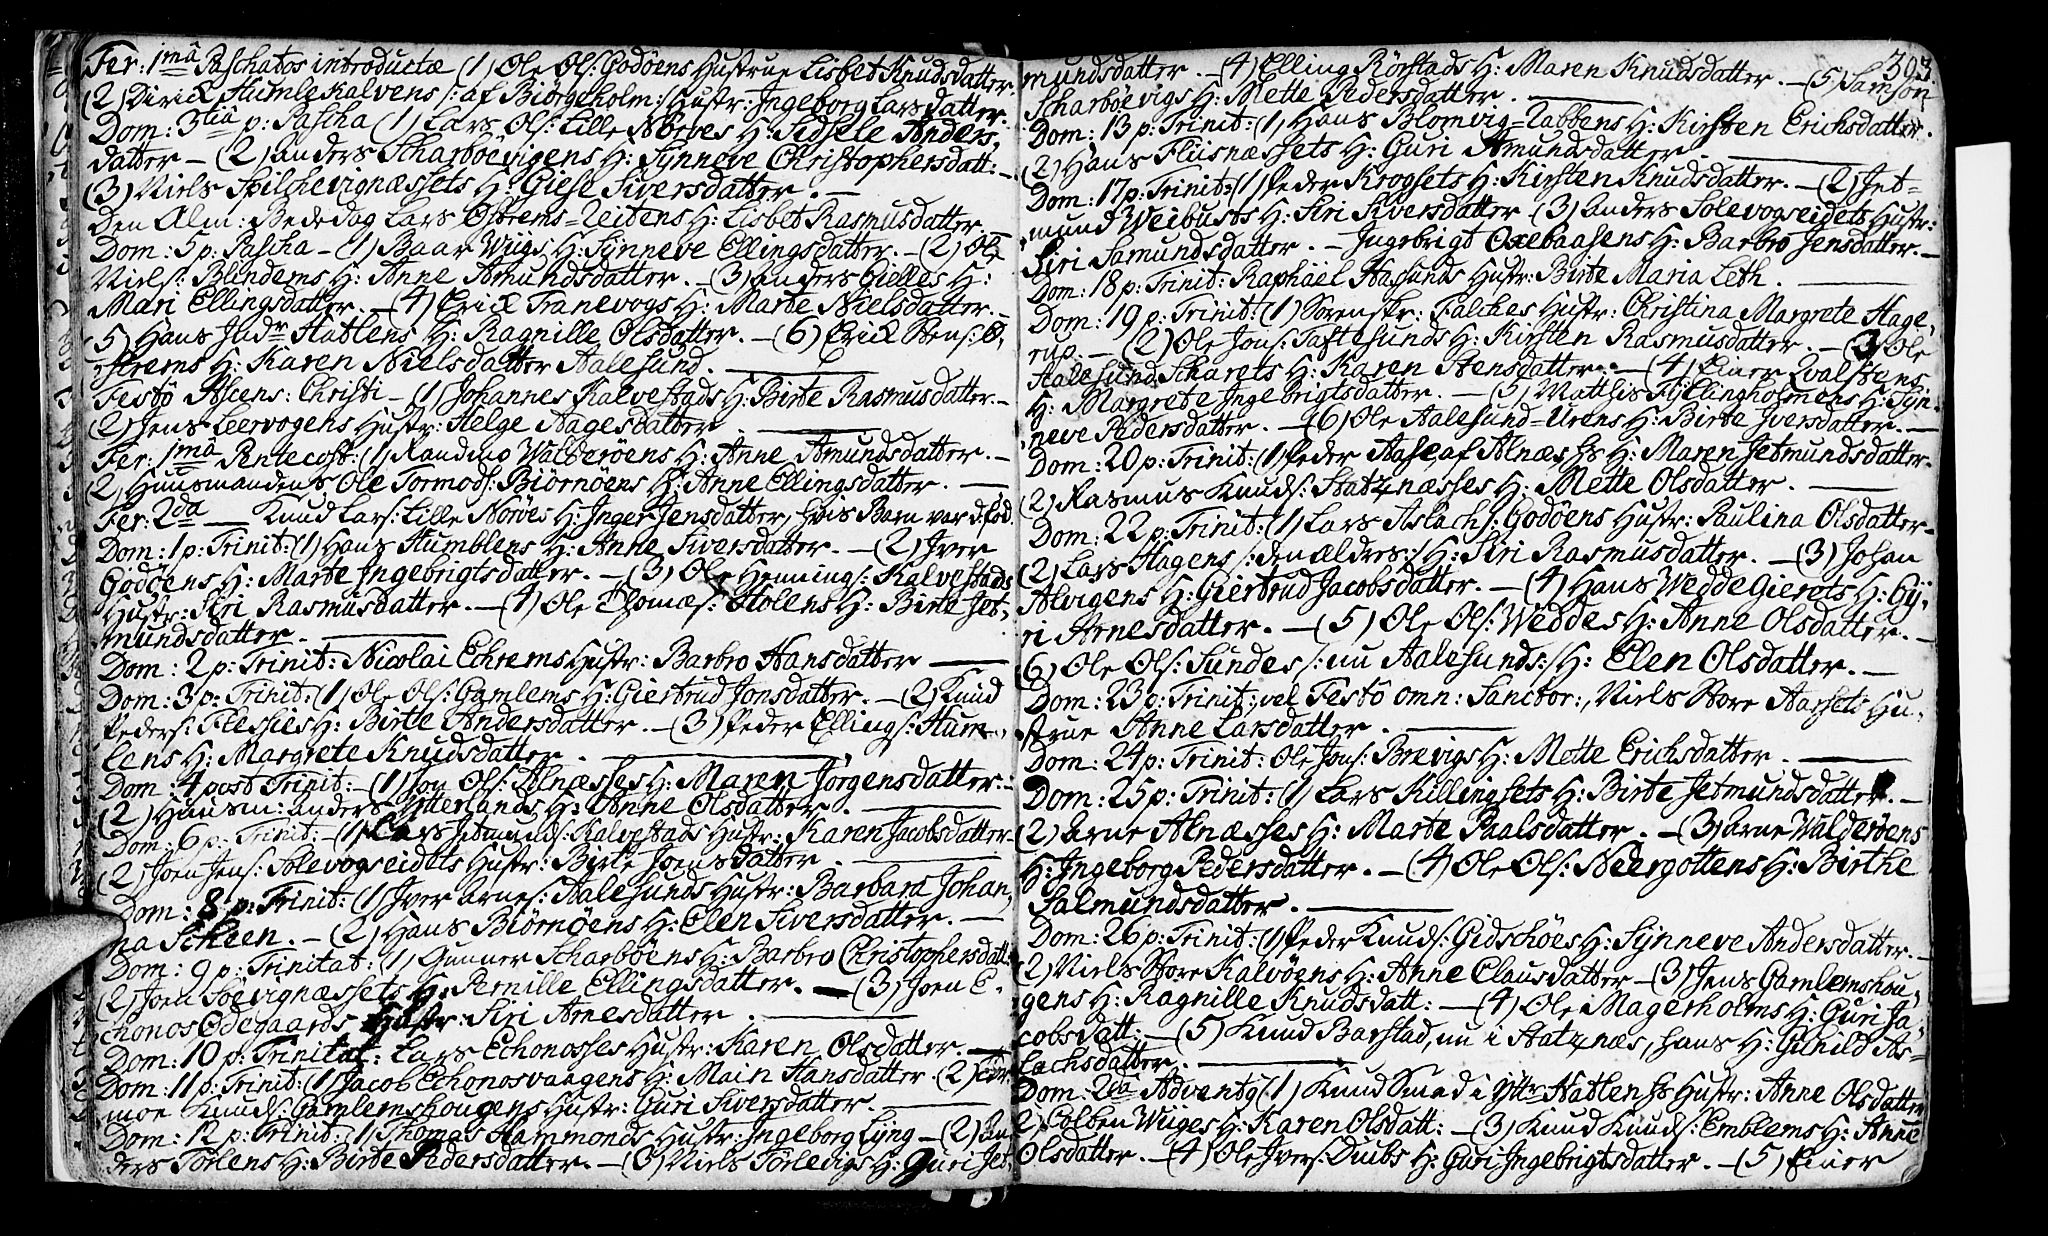 Fer: 1mâ Paschatos introductæ (1) Ole Ols: Godøens Hustrue Lisbet Knudsdatter.
(2) Dirick Humlekalvens /: af Biørgeholm:/ Hustr: Ingeborg Lars datter.
Dom: 3tiâ p: Pascha (1, Lars Ols: Lille Nørves H: Sidsele Anders,
datter – (2) Anders Scharbøevigens H: Synneve Christophersdatt: –
(3) Niels Spilchevignæssets H: Giese Siversdatter. –
Den Alm: Bededag Lars Østrems=Leitens H: Lisbet Rasmusdatter.
Dom: 5 p: Pascha – (1) Baar Wiigs H: Synneve Ellingsdatter. – (2) Ole
Niels: Blindems H: Anne Amundsdatter. – (3) Anders Gilles H:
Mari Ellingsdatter. – (4) Erick Tranevogs H: Marte Nielsdatter. –
5) Hans Indr Hatlens H: Ragnille Olsdatter. – (6) Erick Stens: Ø,
strems H: Karen Nielsdatter Aalesund.
Festô Ascens: Christi – (1) Johannes Kalvestads H: Birte Rasmusdatter. –
(2) Jens Leervogens Hustr: Helge Aagesdatter
Fer: 1mâ Pentecost: (1, Randino Walderøens H: Anne Amundsdatter. –
2, Huusmandens Ole Tormods: Biørnøens H: Anne Ellingsdatter. –
Fer: 2da – Knud Lars: Lille Nørves H: Inger Jensdatter, hvis Barn var dfød.
Dom: 1 p: Trinit: (1) Hans Humblens H: Anne Siversdatter. – (2) Iver
Godøens H: Marte Ingebrigtsdatter. – (3) Ole Hennings: Kalvestads
Hustr: Siri Rasmusdatter. – (4) Ole Thomæs: Holens H: Birte Jet,
mundsdatter.
Dom: 2 p: Trinit: Nicolai Echrems Hustr: Barbro Hansdatter
Dom: 3 p: Trinit: (1, Ole Ols: Gamlems H: Giertrud Jonsdatter. – (2) Knud
Peders: Flesies H: Birte Andersdatter. – (3) Peder Ellings: Hum,
lens H: Margrete Knudsdatter.
Dom: 4 post Trinit: – (1) Jon Ols: Alnæsses H: Maren Jørgensdatter. –
(2) Huusm: Anders Ytterlands H: Anne Olsdatter.
Dom: 6 p: Trinit: – (1, Lars Jetmunds: Kalvestads Hustr: Karen Jacobsdatter
(2) Joen Jens: Solevogseidets Hustr: Birte Joensdatter
Dom: 8 p: Trinit: (1) Iver Arnes: Aalesunds Hustr: Barbara Johan,
na Scheen. – (2) Hans Biørnøens H: Elen Siversdatter. –
Dom: 9 p: Trinitat: (1, Gunner Scharbøens H: Barbro Christophersdatt:
(2) Joen Søevignæssets H: Pernille Ellingsdatter. – (3) Joen E,
chonos Ødegaards Hustr: Siri Arnesdatter.
Dom: 10 p: Trinitat: Lars Echonosses Hustr: Karen Olsdatter. –
Dom: 11 p: Trinit: (1) Jacob Echonosvaagens H: Marn Hansdatter. (2) Tor
moe Knuds: Gamlemshougens Hustr: Guri Siversdatter.
Dom: 12 p: Trinit: (1, Thomas Hammonds Hustr: Ingeborg Lyng – (2) An
ders Tørlens H: Birte Pedersdatter. – (3) Niels Tørlevigs H: Guri Jet,
393.
mundsdatter. – (4) Elling Rørstads H: Maren Knudsdatter. – (5) Samson
Scharbøevigs H: Mette Pedersdatter.
Dom: 13 p: Trinit: (1, Hans Blomvig=Nabbens H: Kirsten Erichsdatter.
(2) Hans Fliisnæssets H: Guri Amundsdatter.
Dom: 17 p: Trinit: (1) Peder Krogsets H: Kirsten Knudsdatter. – (2) Jet=
mund Weibusts H: Siri Siversdatter – (3) Anders Solevogseidets Hustr:
Siri Samundsdatter. – Ingebrigt Oxebaasens H: Barbro Jensdatter. –
Dom: 18 p: Trinit: Raphäel Haslunds Hustr: Birte Maria Leth.
Dom: 19 p: Trinit: (1) Sorenskr: Falches Hustr: Christina Margrete Hage,
rup. – (2) Ole Jons: Taftesunds H: Kirsten Rasmusdatter. – (3) Ole
Aalesund Scharets H: Karen Stensdatter. – (4) Einer Qvalstens
H: Margrete Ingebrigtsdatter. – (5) Mattis Fyllingholmens H: Syn,
neve Pedersdatter. – (6) Ole Aalesund=Urens H: Birte Iversdatter. –
Dom: 20 p: Trinit: (1) Peder Aase af Alnæs hs H: Maren Jetmundsdatter.
(2) Rasmus Knuds: Hatznæsses H: Mette Olsdatter.
Dom: 22 p: Trinit: (1) Lars Aslach: Godøens Hustr: Paulina Olsdatter.
(2) Lars Hagens /: den ældres:/ H: Siri Rasmusdatter. – (3) Johan
Alvigens H: Giertrud Jacobsdatter. – (4) Hans Wedde Gierets H: Gy,
ri Arnesdatter. – (5) Ole Ols: Weddes H: Anne Olsdatter. –
(6) Ole Ols: Sundes /: nu Aalesunds:/ H: Elen Olsdatter. –
Dom: 23 p: Trinit: vel Festô omn: Sanctor:, Niels Store Aarsets Hu,
strue Anne Larsdatter.
Dom: 24 p: Trinit: Ole Jons: Brevigs H: Mette Erichsdatter.
Dom: 25 p: Trinit: (1) Lars Killingsets H: Birte Jetmundsdatter. –
(2) Arne Alnæsses H: Marte Paalsdatter. – (3) Arne Walderøens
H: Ingeborg Pedersdatter. – (4) Ole Ols: Neergottens H: Birthe
Salmundsdatter.
Dom: 26 p: Trinit: (1) Peder Knuds: Gidschöes H: Synneve Andersdatter. –
(2) Niels Store Kalvøens H: Anne Clausdatter – (3) Jens Gamlemshou,
gens H: Ragnille Knudsdatt: – (4) Ole Magerholms H: Guri Ja,
cobsdatt: – (5) Knud Barstad, nu i Hatznæs, hans H: Gunild As=
lachsdatter.
Dom: 2dâ Adventûs (1) Knud Smed i Yttr Hatlen hs Hustr: Anne Olsdatter
2) Colben Wiiges H: Karen Olsdatt: – (3) Knud Knuds: Emblems H: Anne
Olsdatter. – (4) Ole Ivers: Duibs H: Guri Ingebrigtsdatter. – (5) Einer